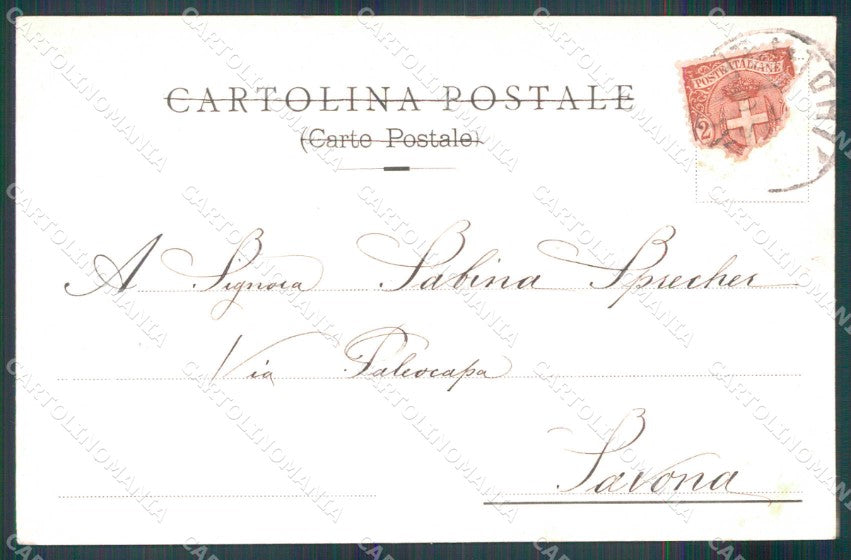 CARTOLINA POSTALE
(Carte Postale)
POSTE ITALIANE
2
A Signora Sabina Sprecher
Via Paleocapa
Savona
CARTOLINOMANIA